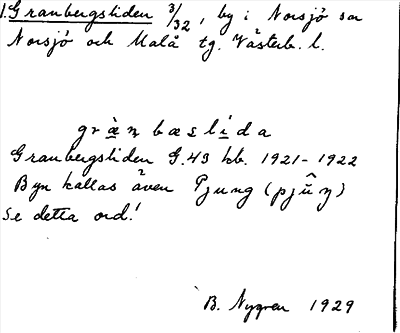 1. Granbergsliden 3/32, by i Norsjö sn
Norsjö och Malå tg. Västerb. l.
gràn bæslída
Granbergsliden G.43 kb. 1921-1922
Byn kallas även Pjung (pjûŋ)
Se detta ord!
B. Nygren 1929